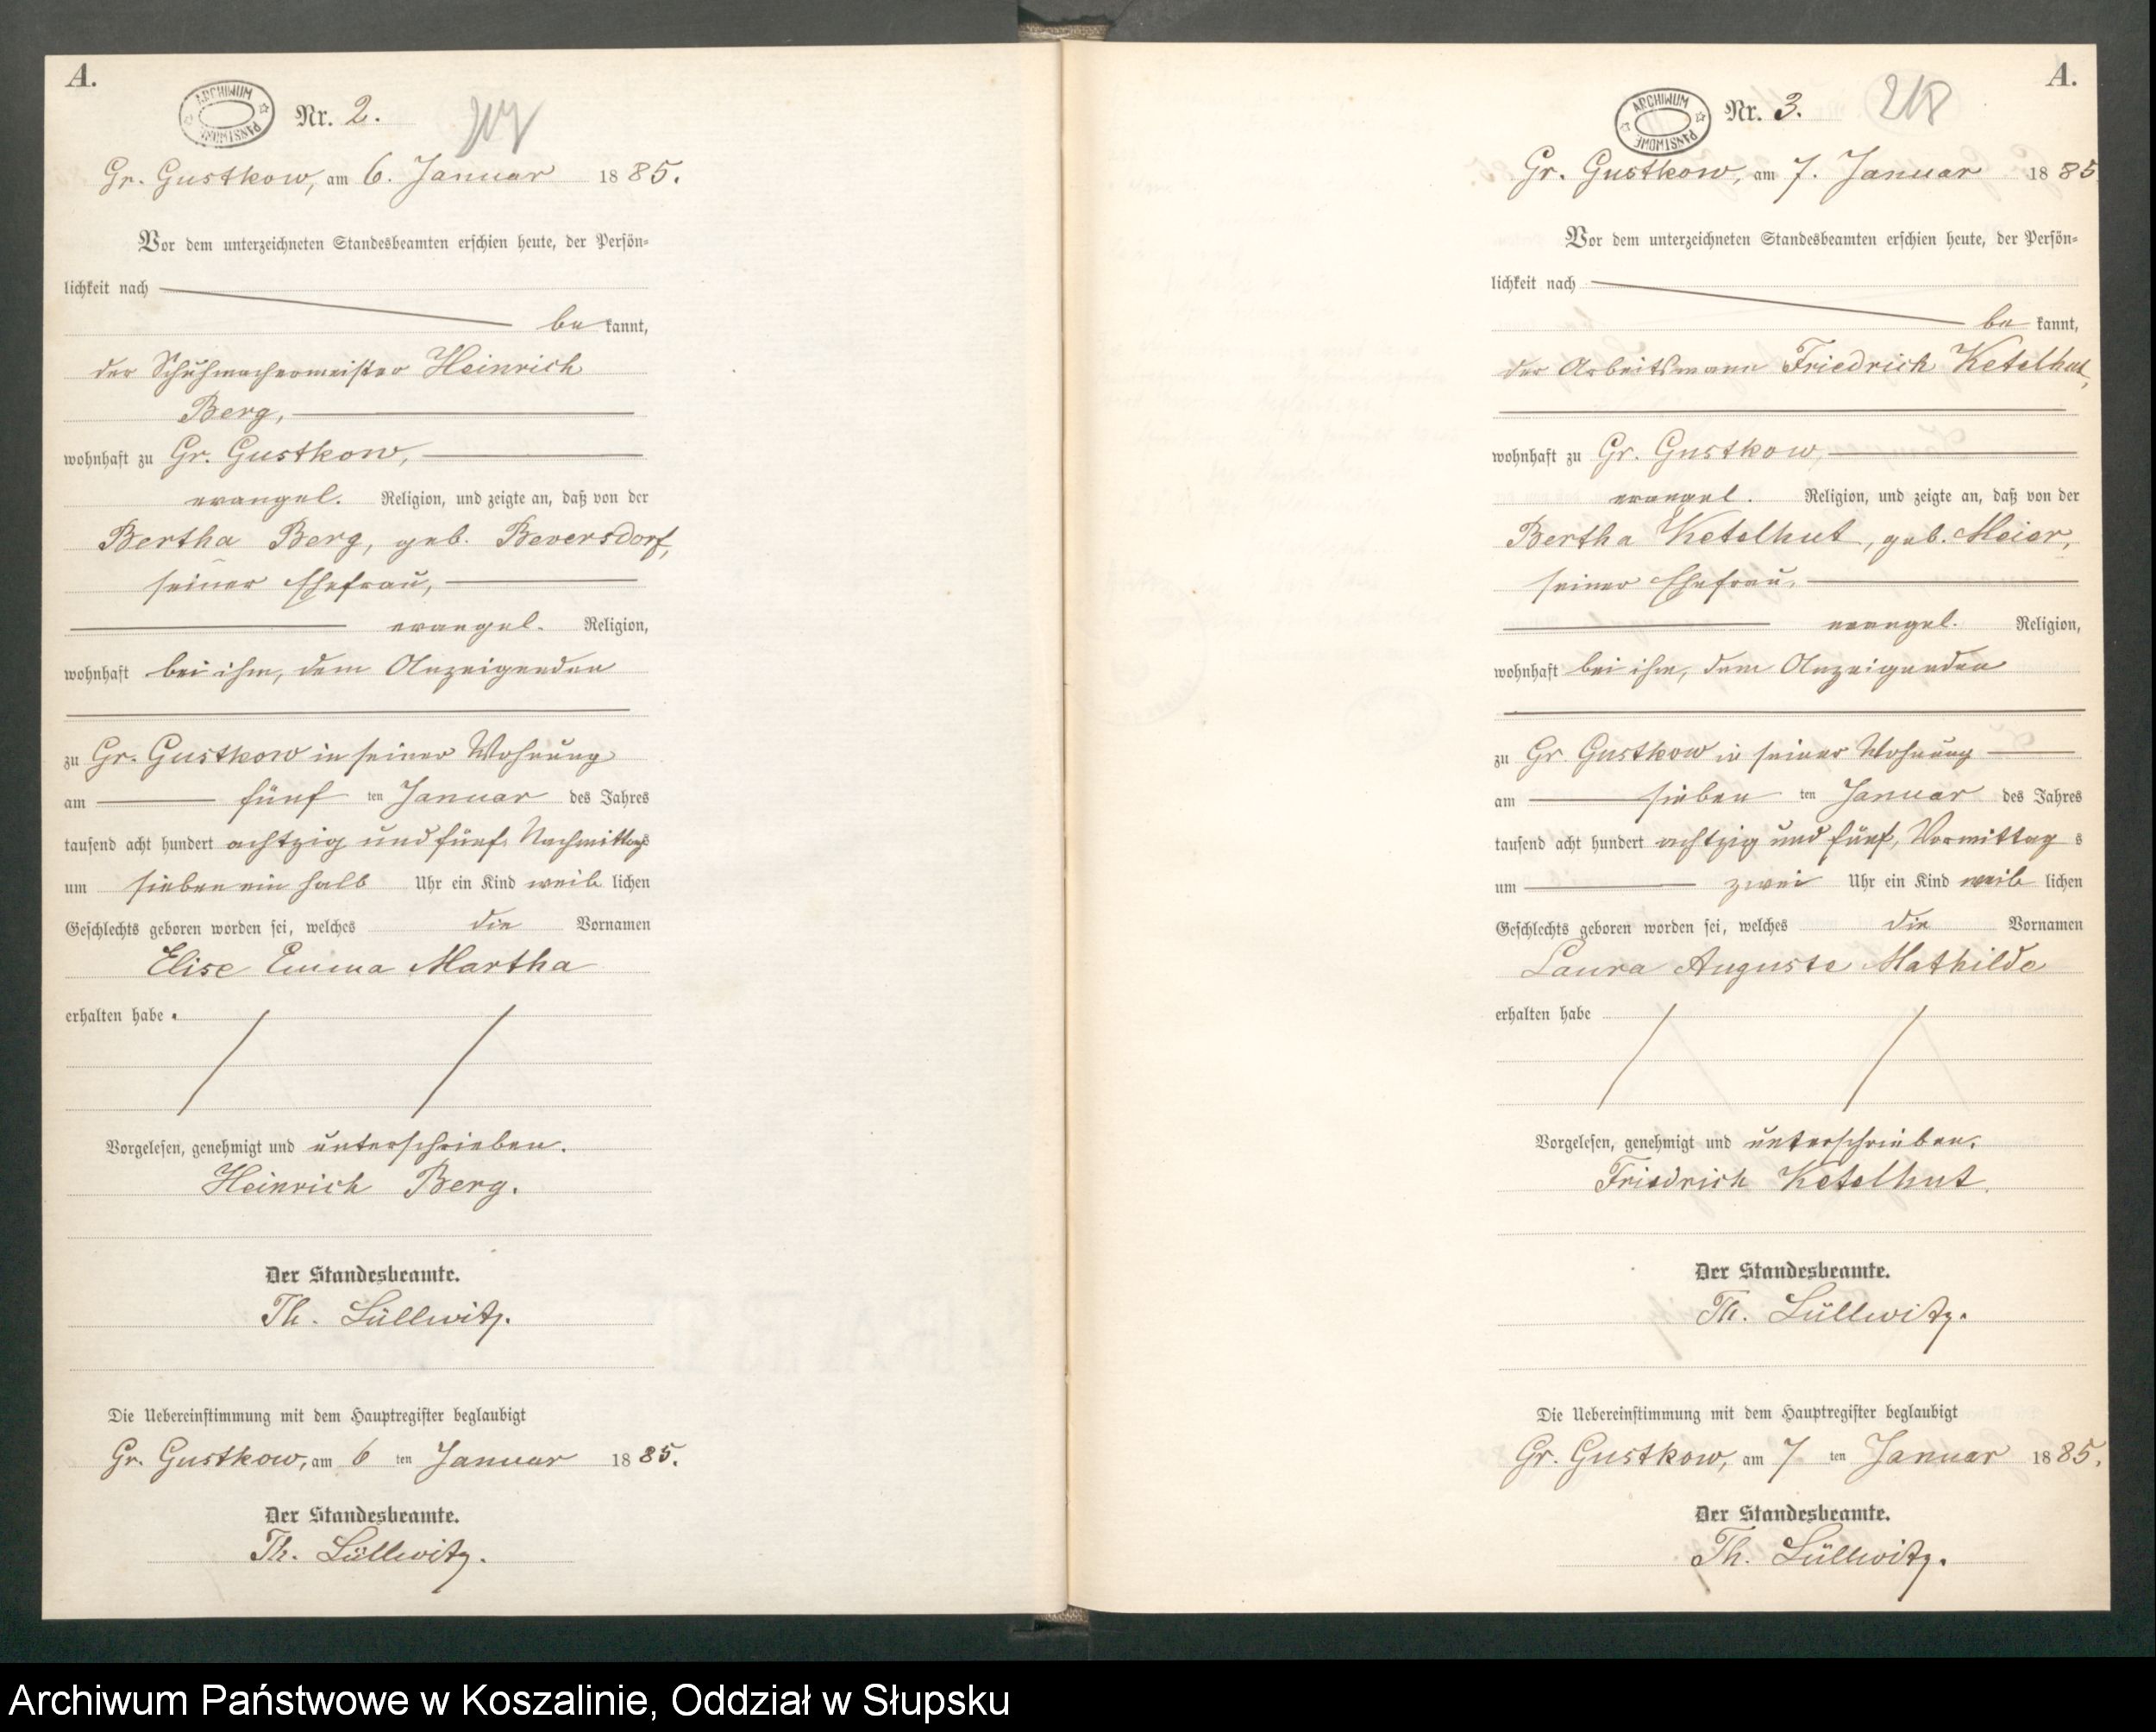 A.
ARCHIWUM PAŃSTWOWE
Nr. 2.
217
Gr. Gustkow, am 6. Januar 1885.
Vor dem unterzeichneten Standesbeamten erschien heute, der Persön-
lichkeit nach
be kannt,
der Schuhmachermeister Heinrich
Berg,
wohnhaft zu Gr. Gustkow,
evangel. Religion, und zeigte an, daß von der
Bertha Berg, geb. Beversdorf,
seiner Ehefrau,
evangel. Religion,
wohnhaft bei ihm, dem Anzeigenden
zu Gr. Gustkow in seiner Wohnung
am fünf ten Januar des Jahres
tausend acht hundert achtzig und fünf, Nachmittags
um sieben ein halb Uhr ein Kind weib lichen
Geschlechts geboren worden sei, welches die Vornamen
Elise Emma Martha
erhalten habe.
Vorgelesen, genehmigt und unterschrieben.
Heinrich Berg.
Der Standesbeamte.
Th. Lüllwitz.
Die Uebereinstimmung mit dem Hauptregister beglaubigt
Gr. Gustkow, am 6 ten Januar 1885.
Der Standesbeamte.
Th. Lüllwitz.
A.
ARCHIWUM PAŃSTWOWE
Nr. 3.
218
Gr. Gustkow, am 7. Januar 1885
Vor dem unterzeichneten Standesbeamten erschien heute, der Persön-
lichkeit nach
be kannt,
der Arbeitsmann Friedrich Ketelhut,
wohnhaft zu Gr. Gustkow,
evangel. Religion, und zeigte an, daß von der
Bertha Ketelhut, geb. Meier,
seiner Ehefrau,
evangel. Religion,
wohnhaft bei ihm, dem Anzeigenden
zu Gr. Gustkow in seiner Wohnung
am sieben ten Januar des Jahres
tausend acht hundert achtzig und fünf, Vormittag s
um zwei Uhr ein Kind weib lichen
Geschlechts geboren worden sei, welches die Vornamen
Laura Auguste Mathilde
erhalten habe
Vorgelesen, genehmigt und unterschrieben.
Friedrich Ketelhut.
Der Standesbeamte.
Th. Lüllwitz.
Die Uebereinstimmung mit dem Hauptregister beglaubigt
Gr. Gustkow, am 7 ten Januar 1885.
Der Standesbeamte.
Th. Lüllwitz.
Archiwum Państwowe w Koszalinie, Oddział w Słupsku